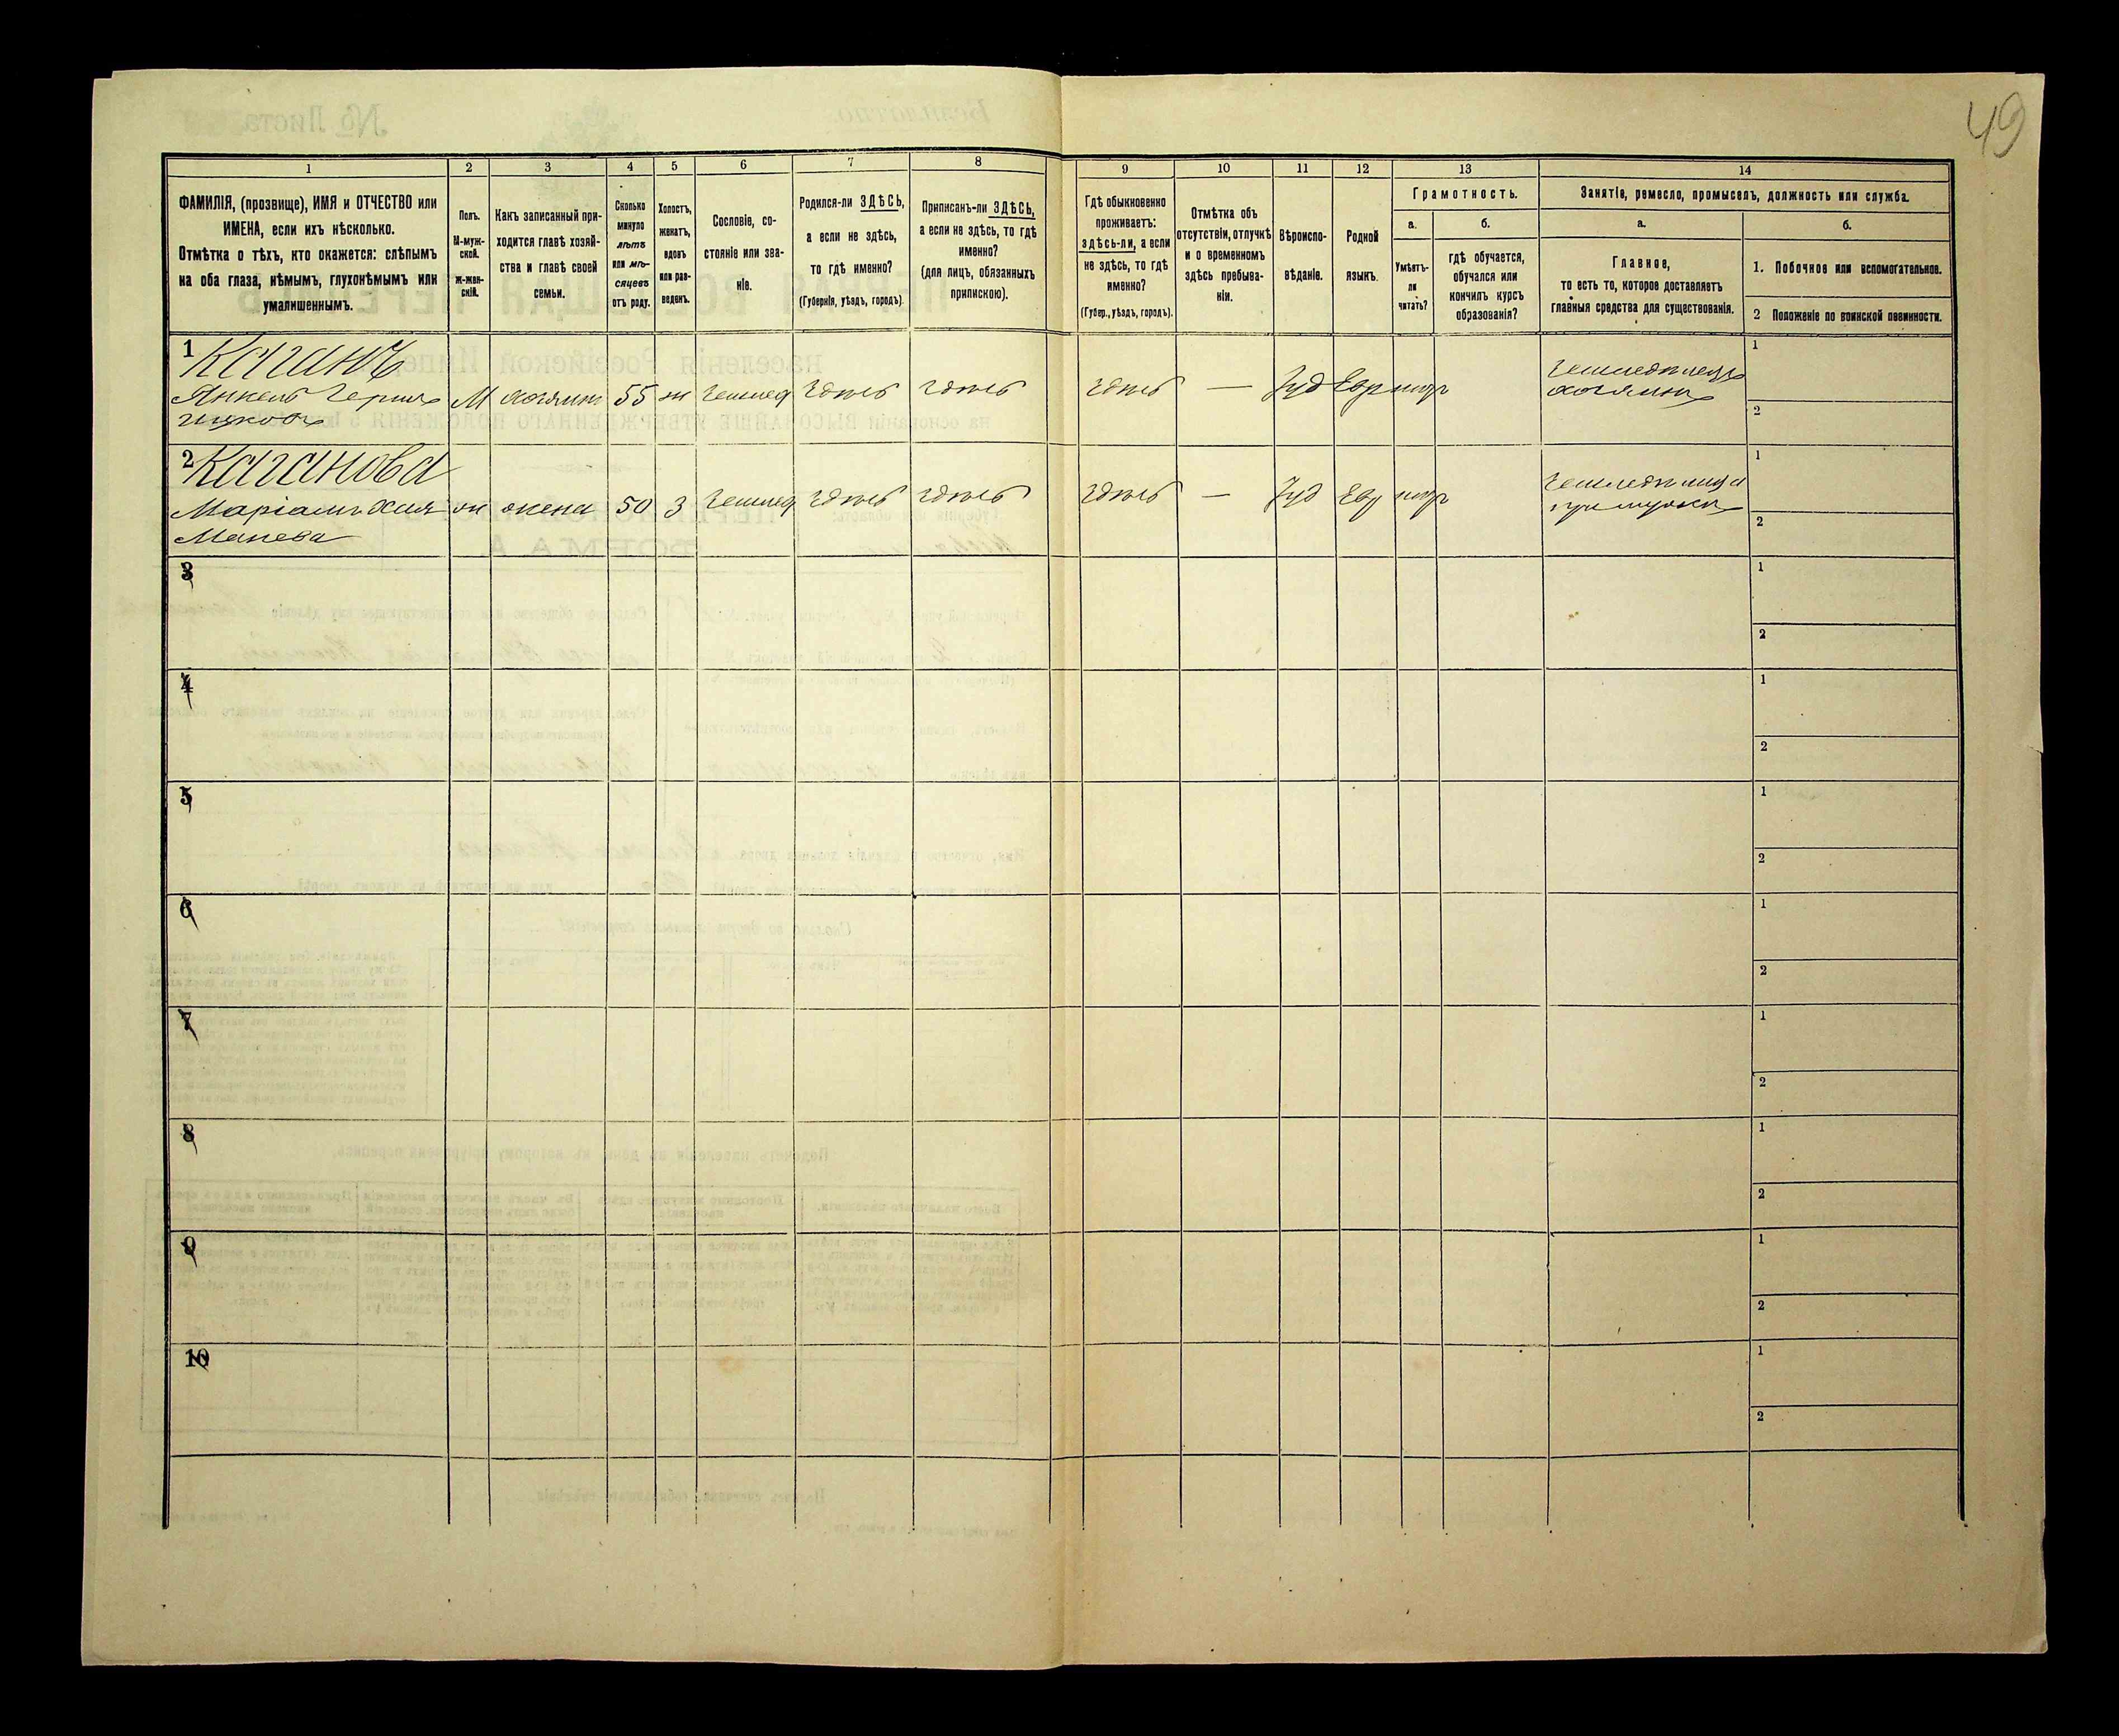 49
1
ФАМИЛІЯ, (прозвище), ИМЯ и ОТЧЕСТВО или
ИМЕНА, если ихъ нѣсколько.
Отмѣтка о тѣхъ, кто окажется: слѣпымъ
на оба глаза, нѣмымъ, глухонѣмымъ или
умалишеннымъ.
2
Полъ.
М-муж-
ской.
ж-жен-
скій.
3
Какъ записанный при-
ходится главѣ хозяй-
ства и главѣ своей
семьи.
4
Сколько
минуло
лѣтъ
или мѣ-
сяцевъ
отъ роду.
5
Холостъ,
женатъ,
вдовъ
или раз-
веденъ.
6
Сословіе, со-
стояніе или зва-
ніе.
7
Родился-ли ЗДѢСЬ,
а если не здѣсь,
то гдѣ именно?
(Губернія, уѣздъ, городъ).
8
Приписанъ-ли ЗДѢСЬ,
а если не здѣсь, то гдѣ
именно?
(для лицъ, обязанныхъ
припискою).
9
Гдѣ обыкновенно
проживаетъ:
здѣсь-ли, а если
не здѣсь, то гдѣ
именно?
(Губер., уѣздъ, городъ).
10
Отмѣтка объ
отсутствіи, отлучкѣ
и о временномъ
здѣсь пребыва-
ніи.
11
Вѣроиспо-
вѣданіе.
12
Родной
языкъ.
13
Грамотность.
а.
Умѣетъ-
ли
читать?
б.
гдѣ обучается,
обучался или
кончилъ курсъ
образованія?
14
Занятіе, ремесло, промыселъ, должность или служба.
а.
Главное,
то есть то, которое доставляетъ
главныя средства для существованія.
б.
1. Побочное или вспомогательное.
2 Положеніе по воинской повинности.
1 Каганъ
Янкель
М хозяинъ 55 ж Землед здѣсь здѣсь здѣсь — Іуд Евр негр
Земледѣлецъ
хозяинъ
1
2
2 Каганова
Маріамъ Хая
ж жена 50 З Землед здѣсь здѣсь здѣсь — Іуд Евр негр
1
2
3
1
2
4
1
2
5
1
2
6
1
2
7
1
2
8
1
2
9
1
2
10
1
2